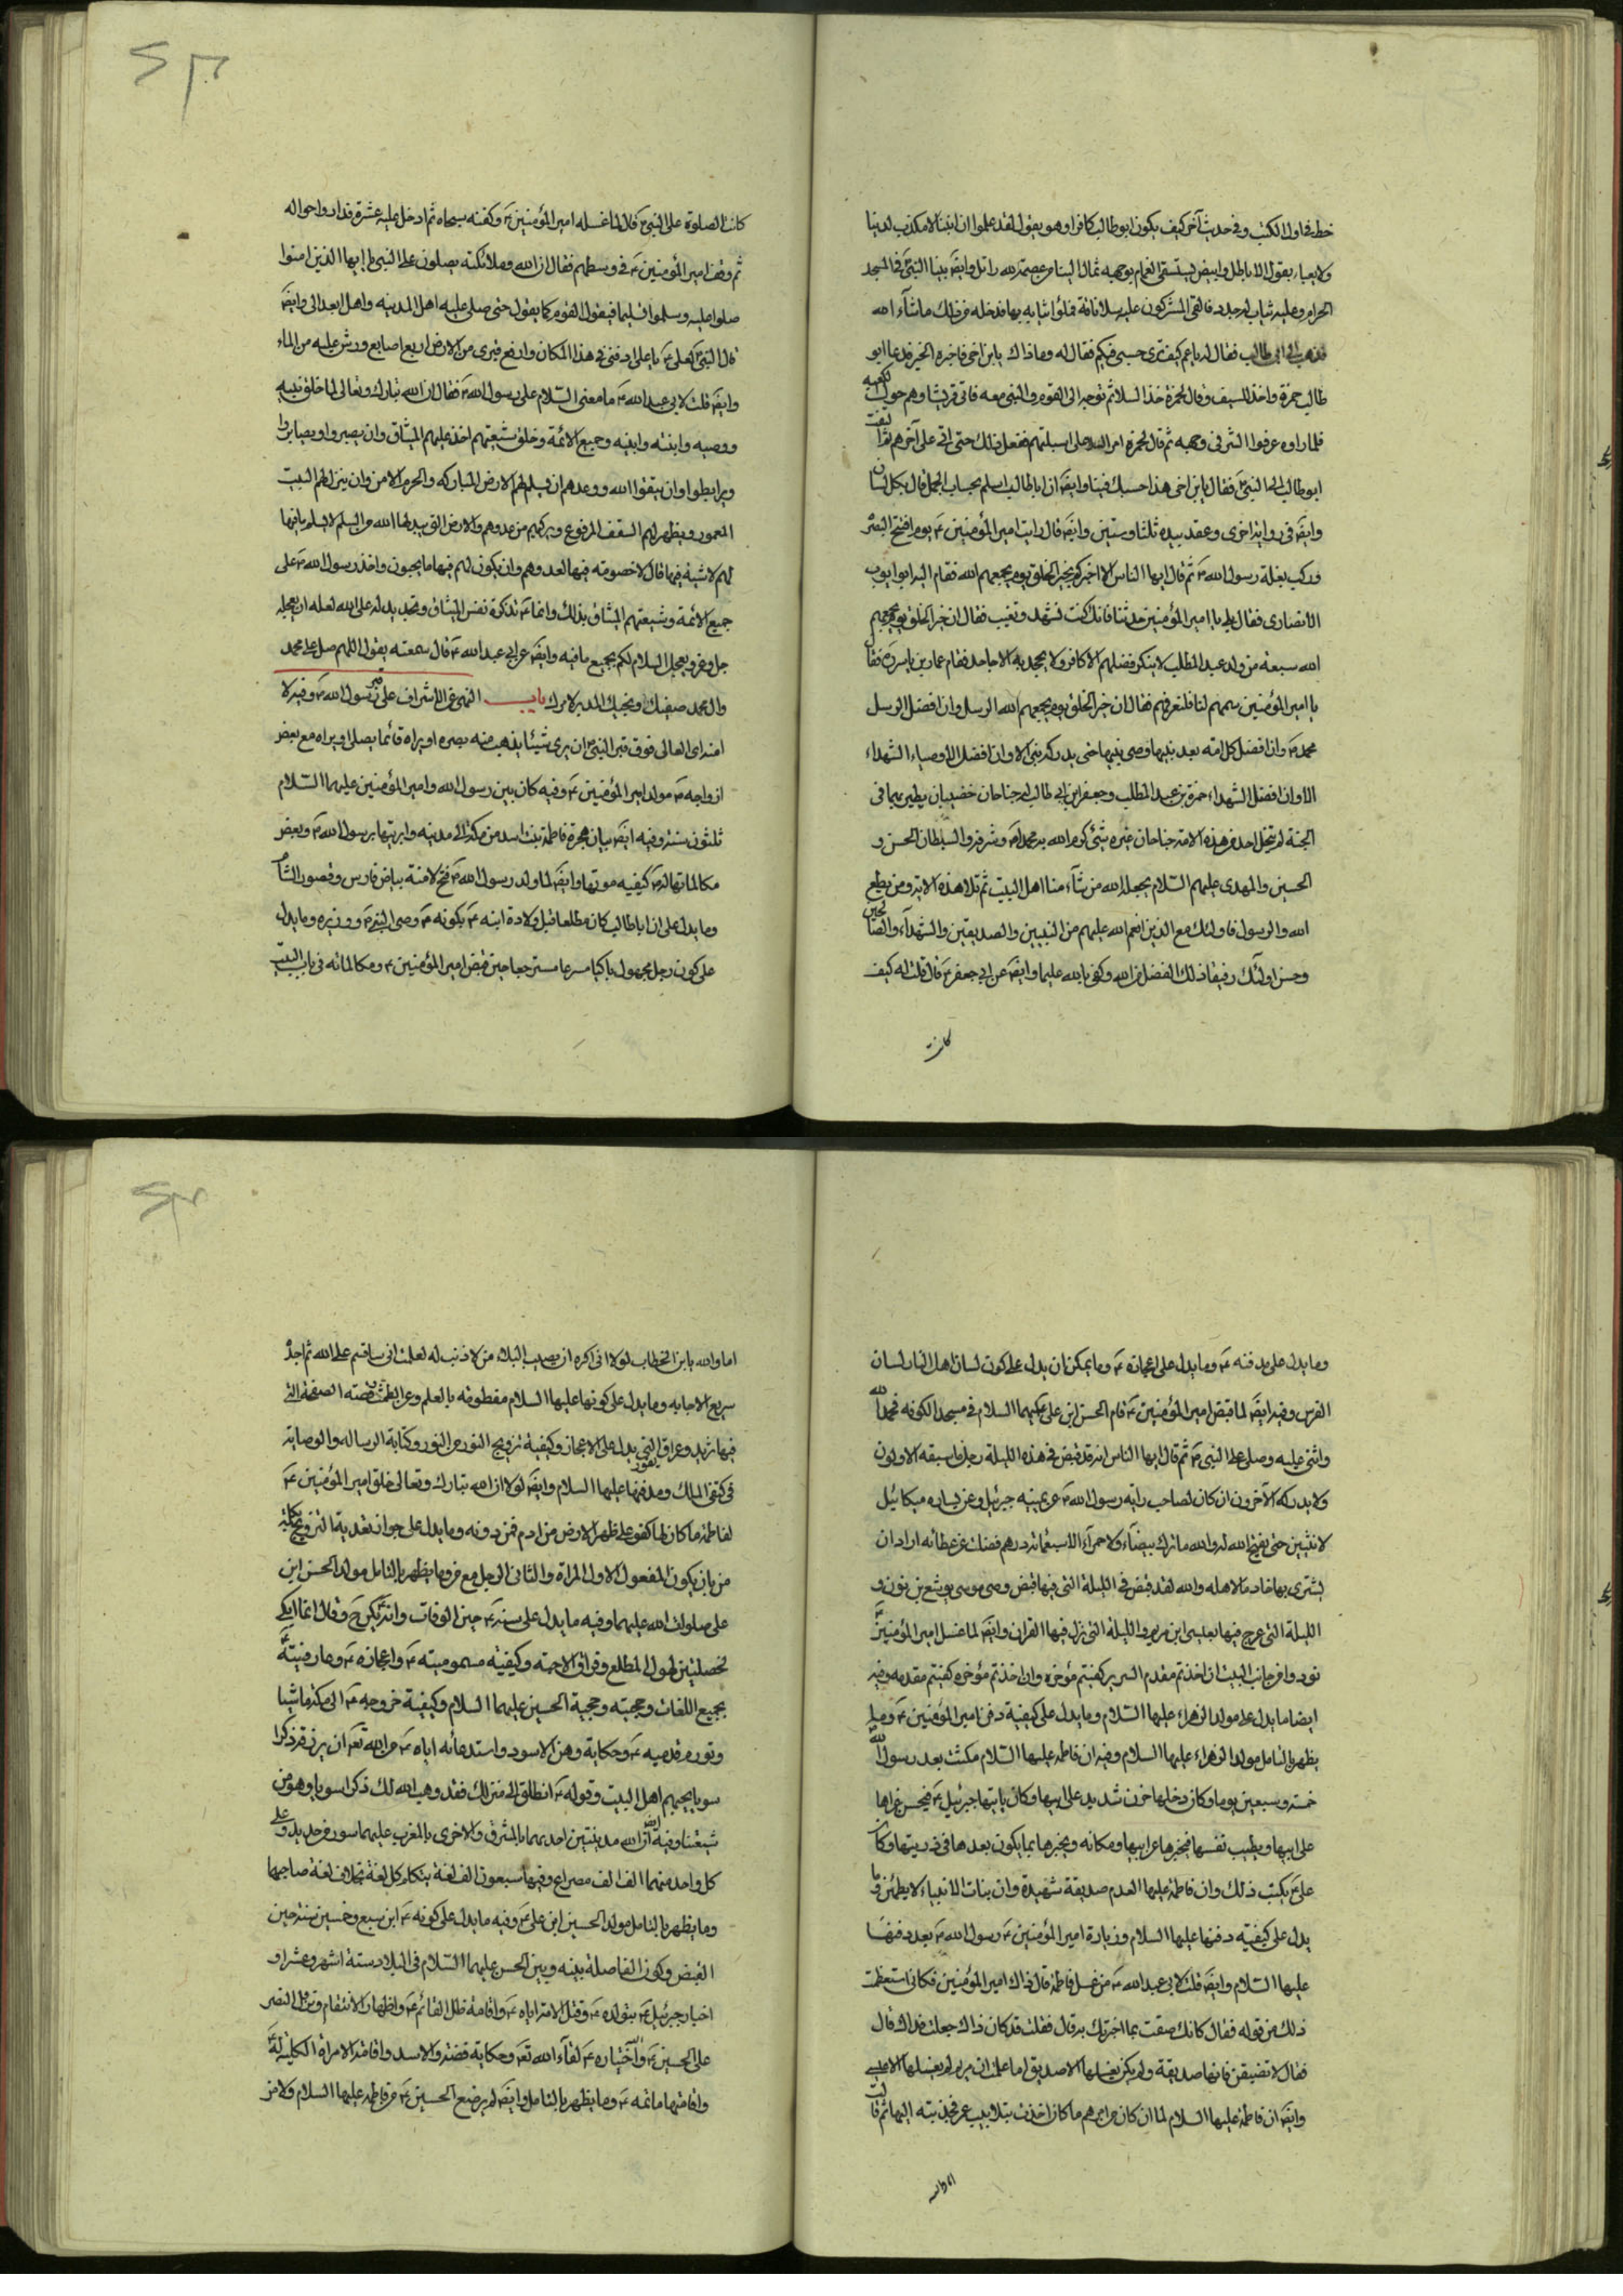 خط في اول الكتب وفي حديث آخر كيف يكون ابوطالب كافرا وهو يقول لقد علموا ان ابننا لا مكذب لدينا
ولا يعبأ بقول الاباطل وابيض يستسقى الغمام بوجهه ثمال اليتامى عصمة لله رامل وايضَ بينا النبيّ في المسجد
الحرام وعليه ثياب له جدد فالقى المشركون عليه سلا ناقة فملؤا ثيابه بها فدخله من ذلك ما شآء الله
فذهب الى ابى طالب فقال له يا عم كيف ترى حسبى فيكم فقال له وماذاك يابن اخى فاخبره الخبر فدعا ابو
طالب حمزة واخذ السيف وقال لحمزة خذ السلا ثم توجه الى القوم والنبى معه فاتى قريشا وهم حول الكعبة
فلما راوه عرفوا الشر فى وجهه ثم قال لحمزة امر السلا على اسبلتهم ففعل ذلك حتى اتى على آخرهم ثم التفت
ابوطالب الى النبىّ فقال يابن اخى هذا حسبك فينا وايضَ ان اباطالب اسلم بحساب الجمل قال بكل لسان
وايضَ فى رواية اخرى وعقد بيده ثلثا وستين وايضَ قال رايت امير المؤمنين ع يوم افتتح البصرة
وركب بغلة رسول الله ص ثم قال ايها الناس الا اخبركم بخير الخلق يوم يجمعهم الله فقام اليه ابوايوب
الانصارى فقال بلى يا امير المؤمنين حدثنا فانك كنت تشهد ونغيب فقال ان خير الخلق يوم يجمعهم
الله سبعة من ولد عبد المطلب لا ينكر فضلهم الا كافر ولا يجحد به الا جاحد فقام عمار بن ياسر ره فقال
يا امير المؤمنين سمهم لنا فلنعرفهم فقال ان خير الخلق يوم يجمعهم الله الرسل وان افضل الرسل
محمد ص وان افضل كل امة بعد نبيها وصى نبيها حتى يدركه نبى الا وان افضل الاوصياء الشهداء
الا وان افضل الشهداء حمزة بن عبد المطلب وجعفر ابن ابى طالب له جناحان خضيبان يطير بهما فى
الجنة لم ينحل احد من هذه الامة جناحان غيره شئ كرم الله به محمدا ص وشرفه والسبطان الحسن و
الحسين والمهدى عليهم السّلام يجعله الله من شآء منا اهل البيت ثم تلا هذه الآية ومن يطع
الله والرسول فاولئك مع الذين انعم الله عليهم من النبيين والصديقين والشهدآء والصالحين
وحسن اولئك رفيقا ذلك الفضل من الله وكفى بالله عليما وايضَ عن ابى جعفر ع قال قلت له كيف
كانت
كانت الصلوة على النبىّ قال لما غسله امير المؤمنين ع وكفنه سجاه ثم ادخل عليه عشرة فداروا حوله
ثم وقف امير المؤمنين ع فى وسطهم فقال ان الله وملائكته يصلون على النبى يا ايها الذين امنوا
صلوا عليه وسلموا تسليما فيقول القوم كما يقول حتى صلى عليه اهل المدينه واهل العوالى وايضَ
قال النبىّ لعلى ع يا على ادفنى فى هذا المكان وارفع قبرى من الارض اربع اصابع ورش عليه من الماء
وايضَ قلت لابى عبد الله ع ما معنى السّلام على رسول الله ص فقال ان الله تبارك وتعالى لما خلق نبيه
ووصيه وابنته وابنيه وجميع الائمة وخلق شيعتهم اخذ عليهم الميثاق وان يصبروا ويصابروا
ويرابطوا وان يتقوا الله ووعدهم ان يسلم لهم الارض المباركه والحرم الامن وان ينزل لهم البيت
المعمور ويظهر لهم السقف المرفوع ويريحهم من عدوهم والارض التى يبدلها الله من السلم لا يسلم ما فيها
لهم لا شية فيها قال لا خصومه فيها لعدوهم وان يكون لهم فيها ما يحبون واخذ رسول الله ص على
جميع الائمة وشيعتهم الميثاق بذلك وانما ع تذكرة نفس الميثاق وتجديد له على الله لعله ان يعجله
جل وعز ويعجل السلام لكم بجميع ما فيه وايضَ عن ابى عبد الله ع قال سمعته يقول اللهم صل على محمد
وال محمد صفيك ونجيك المدبر لامرك باب النهى عن الاشراف على قبر رسول الله ص وفيه لا
العالى فوق قبر النبىّ ان يرى شيئا يذهب منه بصره او يراه قائما يصلى او يراه مع بعض
ازواجه ص مولد امير المؤمنين ع وفيه كان بين رسول الله وامير المؤمنين عليهما السّلام
ثلثون سنة وفيه ايضَ بيان هجرة فاطمة بنت اسد من مكة الى مدينه وابريتها برسول الله ص وبعض
مكالماتها له ص كيفيه موتها وايضَ لما ولد رسول الله ص فتح لامنة بياض فارس وقصور الشام
وما يدل على ان اباطالب كان مطلعا قبل ولادة ابنه ع بكونه ع وصى النبى ص ووزيره وما يدل
على كون رجل مجهول باكيا مسرعا مسترجعا حين قبض امير المؤمنين ع ومكالماته فى باب البيت
وما يدل على مدفنه ع وما يدل على اعجازه ع وما يمكن ان يدل على كون لسان اهل النار لسان
الفرس وفيه ايضَ لما قبض امير المؤمنين ع قام الحسن ابن على عليهما السلام فى مسجد الكوفه فحمد الله
واثنى عليه وصلى على النبى ص ثم قال ايها الناس انه قد قبض فى هذه الليلة رجل ما سبقه الاولون
ولا يدركه الآخرون ان كان لصاحب راية رسول الله ص عن يمينه جبرئيل وعن يساره ميكائيل
لا ينثنى حتى يفتح الله له والله ما ترك بيضآء ولا حمرآء الا سبعمائة درهم فضلت عن عطائه اراد ان
يشترى بها خادما لاهله والله لقد قبض فى الليلة التى فيها قبض وصى موسى يوشع بن نون و
الليلة التى عرج فيها بعيسى ابن مريم والليلة التى نزل فيها القران وايضَ لما غسل امير المؤمنين ع
نودوا من جانب البيت ان اخذتم مقدم السرير كفيتم مؤخره وان اخذتم مؤخره كفيتم مقدمه وفيه
ايضا ما يدل على مولد الزهراء عليها السلام وما يدل على كيفية دفن امير المؤمنين ع وما
يظهر بالتامل مولد الزهراء عليها السلام وفيه ان فاطمه عليها السّلام مكثت بعد رسول الله
خمسة وسبعين يوما وكان دخلها حزن شديد على ابيها وكان ياتيها جبرئيل ع فيحسن عزاها
على ابيها ويطيب نفسها فيخبرها عن ابيها ومكانه ويخبرها بما يكون بعدها فى ذريتها وكان
علىّ يكتب ذلك وان فاطمة عليها السلام صديقة شهيدة وان بنات الانبياء لا يطمثن وما
يدل على كيفيّة دفنها عليها السلام وزيارة امير المؤمنين ع رسول الله ص بعد دفنها
عليها السّلام وايضَ قلت لابى عبد الله ع من غسل فاطمة قال ذاك امير المؤمنين فكانى استعظمت
ذلك من قوله فقال كانك ضقت بما اخبرتك به قال فقلت قد كان ذاك جعلت فداك قال
فقال لا تضيقن فانها صديقة ولم يكن يغسلها الا صديق اما علمت ان مريم لم يغسلها الا عيسى
وايضَ ان فاطمة عليها السلام لما ان كان من امرهم ما كان اخذت بتلابيب عمر فجذبته اليها ثم قالت
اما والله
اما والله يابن الخطاب لولا انى اكره ان يصيب البلاء من لا ذنب له لعلمت انى ساقسم على الله ثم اجده
سريع الاجابه وما يدل على كونها عليها السلام مفطومة بالعلم وعن الطمث وقصته الصحفة التى
فيها ثريد وعراق التى يدل على الاعجاز وكيفية تزويج النور من النور وكتابة الرساله والوصاية
فى كتفى الملك ومدفنها عليها السلام وايضَ لولا ان الله تبارك وتعالى خلق امير المؤمنين ع
لفاطمة ما كان لها كفو على ظهر الارض من ادم فمن دونه وما يدل على جواز تعدية التزويج بكلمة
من بان يكون المفعول الاول المراة والثانى الرجل مع من وما يظهر بالتامل مولد الحسن ابن
على صلوات الله عليهما وفيه ما يدل على سنه ع حين الوفات وانه بكى ع وقال انما ابكى
لخصلتين لهول المطلع وفراق الاحبة وكيفيّة مسموميته ع واعجازه ع وعارفيته
بجميع اللغات وحجيته وحجية الحسين عليهما السلام وكيفية خروجه ع الى مكة ماشيا
وتورم قدميه ع وحكاية دهن الاسود واستدعائه اياه ع من الله تعَ ان يرزقه ذكرا
سويا يحبهم اهل البيت وقوله ع انطلق الى منزلك فقد وهب الله لك ذكرا سويا وهو من
شيعتنا وفيه ايضَ ان لله مدينتين احديهما بالمشرق والاخرى بالمغرب عليهما سور من حديد وعلى
كل واحد منهما الف الف مصراع وفيها سبعون الف لغة يتكلم كل لغة بخلاف لغة صاحبها
وما يظهر بالتامل مولد الحسين ابن على ع وفيه ما يدل على كونه ع ابن سبع وخمسين سنة حين
القبض وكون الفاصلة بينه وبين الحسن عليهما السّلام فى الميلاد ستة اشهر وعشرا و
اخبار جبرئيل ع بتولده ع وقتل الامة اياه ع واقامة ظل القائم ع واظهار الانتقام ونزول النصر
على الحسين ع واختياره ع لقآء الله تعَ وحكاية فضة والاسد واقامة الامراة الكلبية له ع
واقامتها ماتمه ع وما يظهر بالتامل وايضَ لم يرضع الحسين ع من فاطمه عليها السلام ولا من